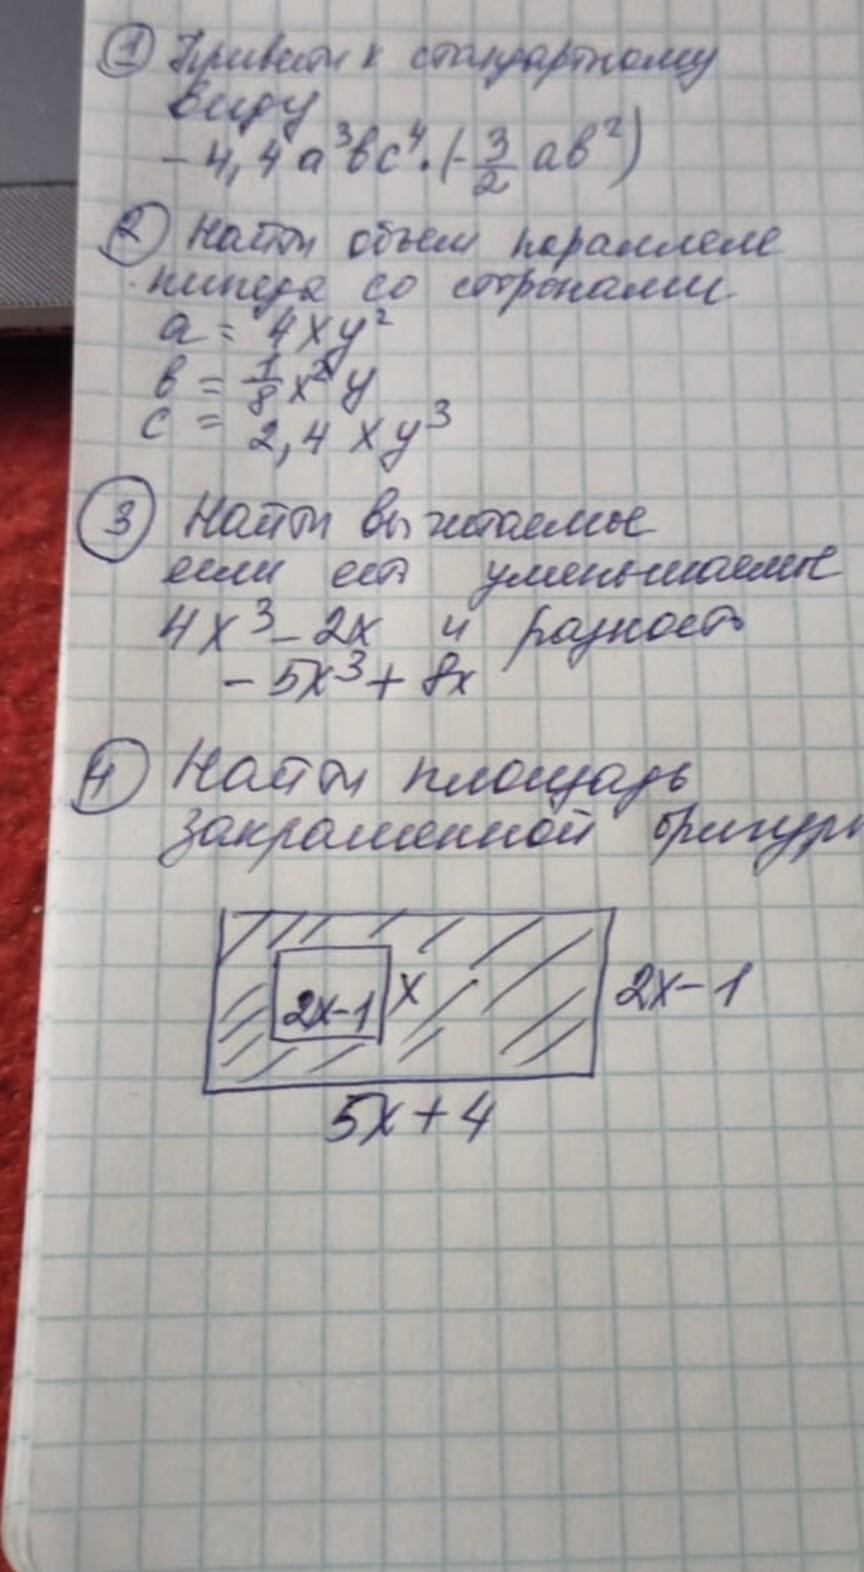 1 Привести к стандартному
виду
-4,4a³bc⁴·(-3/2 ab²)
2 Найти объем параллеле
пипеда со сторонами
a = 4xy²
b = 1/8 x²y
c = 2,4xy³
3 Найти вычитаемое
если есть уменьшаемое
4x³-2x и разность
-5x³+8x
4 Найти площадь
закрашенной фигуры
2x-1 x 2x-1
5x+4